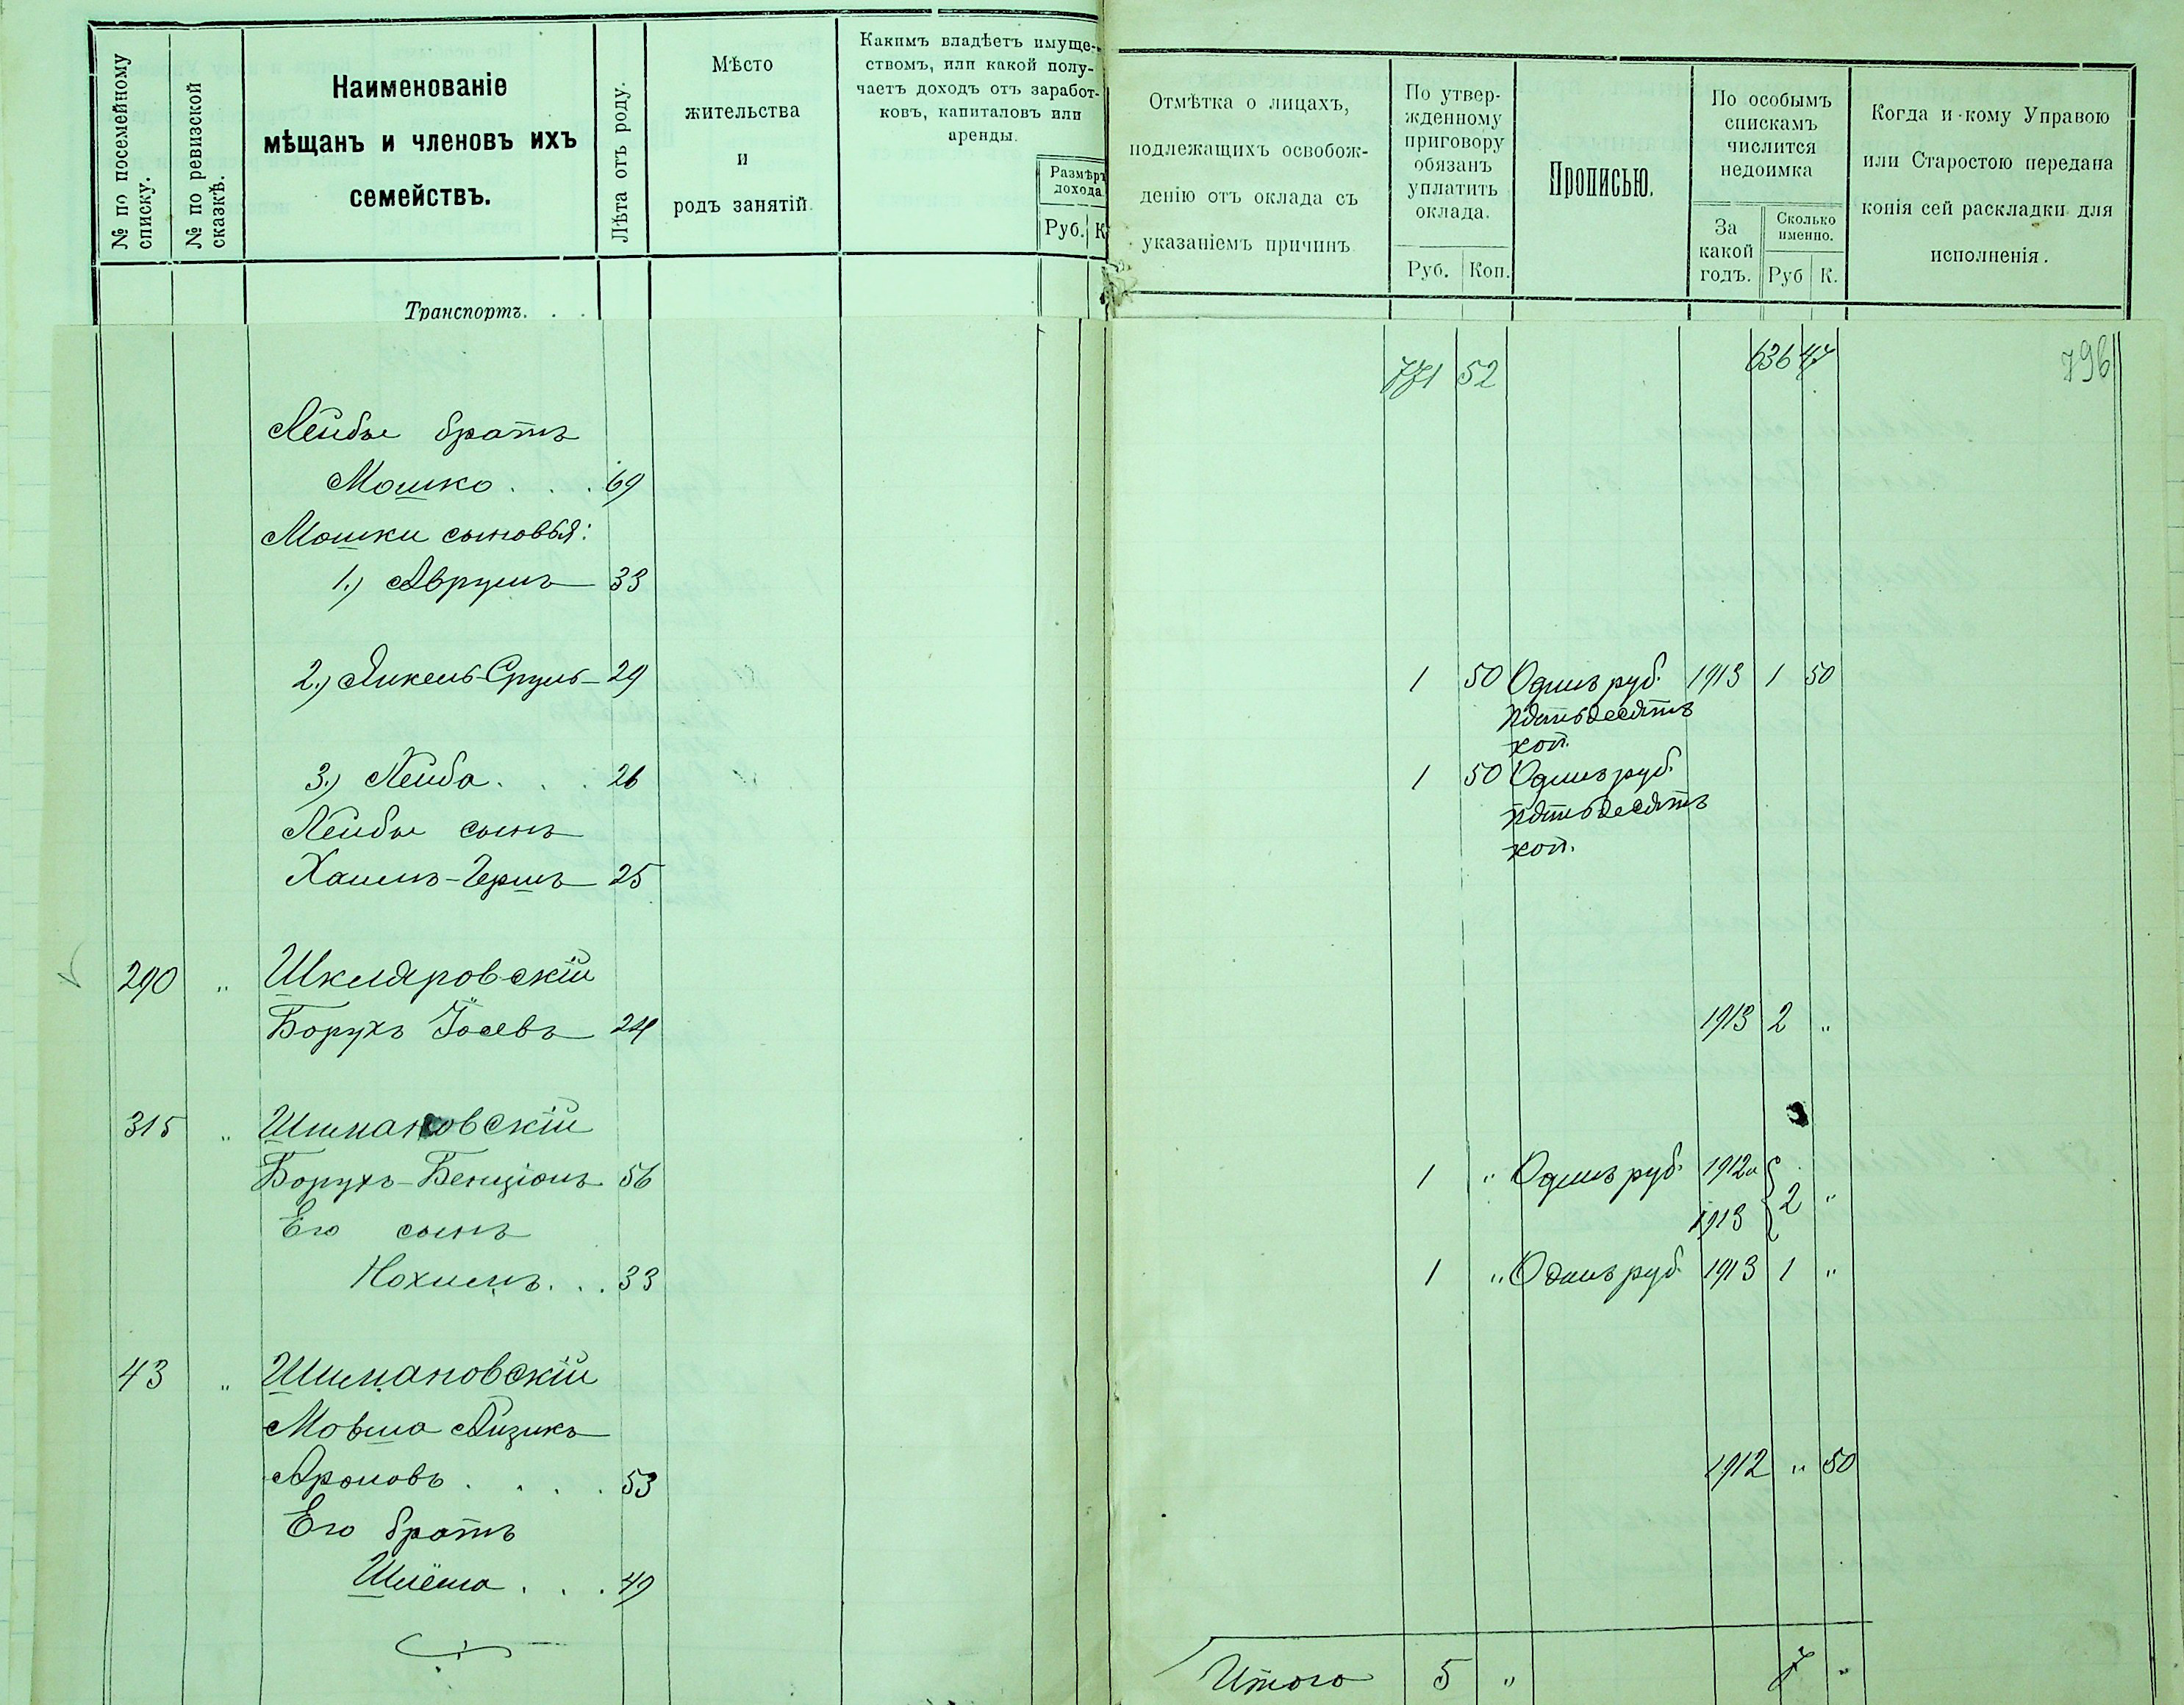 № по посемейному
списку.
№ по ревизской
сказкѣ.
Наименованіе
мѣщанъ и членовъ ихъ
семействъ.
Лѣта отъ роду.
Мѣсто
жительства
и
родъ занятій.
Какимъ владѣетъ имуще-
ствомъ, или какой полу-
чаетъ доходъ отъ заработ-
ковъ, капиталовъ или
аренды.
Размѣръ
дохода
Руб. К
Отмѣтка о лицахъ,
подлежащихъ освобож-
денію отъ оклада съ
указаніемъ причинъ
По утвер-
жденному
приговору
обязанъ
уплатить
оклада.
Руб. Коп.
Прописью.
По особымъ
спискамъ
числится
недоимка
За
какой
годъ.
Сколько
именно.
Руб К.
Когда и кому Управою
или Старостою передана
копія сей раскладки для
исполненія.
Транспортъ. . .
771 52 636 47 796
Лейбы братъ
Мошко . . . 69
Мошки сыновья:
1.) Аврумъ 33
2.) Янкель-Сруль 29 1 50 Одинъ руб. 1913 1 50
пятьдесятъ
коп.
3.) Лейба . . . 26 1 50 Одинъ руб.
пятьдесятъ
коп.
Лейбы сынъ
Хаимъ-Гершъ 25
290 " Шкляровскій
Борухъ Іосевъ 24 1913 2 "
315 " Шимановскій
Борухъ-Бенціонъ 56 1 " Одинъ руб. 1912 и
1913 2 "
Его сынъ
Нохимъ . . . 33 1 " Одинъ руб. 1913 1 "
43 " Шимановскій
Мовша Айзикъ
Ароновъ . . . . 53 1912 " 50
Его братъ
Шлёма . . . 49
Итого 5 " 7 "